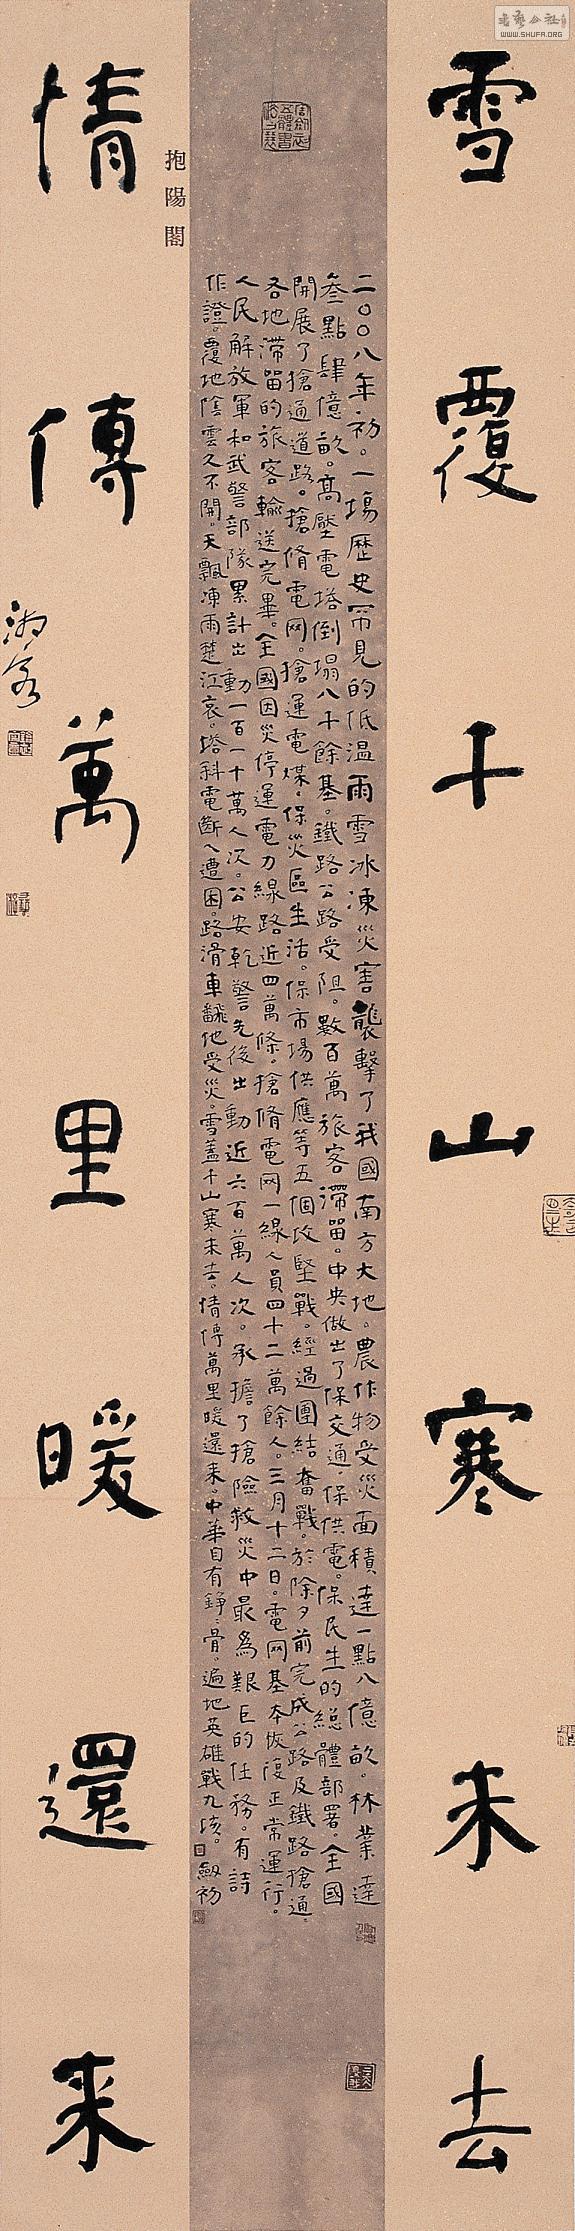 雪覆千山寒未去
二〇〇八年初。一場歷史罕見的低溫雨雪冰凍災害襲擊了我國南方大地。農作物受災面積達一點八億畝。林業達
叁點肆億畝。高壓電塔倒塌八千餘基。鐵路公路受阻。數百萬旅客滯留。中央做出了保交通。保供電。保民生的總體部署。全國
開展了搶通道路。搶脩電网。搶運電煤。保災區生活。保市場供應等五個攻堅戰。經過團結奮戰。於除夕前完成公路及鐵路搶通。
各地滯留的旅客輸送完畢。全國因災停運電力線路近四萬條。搶脩電网一線人員四十二萬餘人。三月十二日。電网基本恢復正常運行。
人民解放軍和武警部隊累計出動一百一十萬人次。公安乾警先後出動近六百萬人次。承擔了搶險救災中最為艱巨的任務。有詩
作證。覆地陰雲久不開。天飄凍雨楚江哀。塔斜電斷人遭困。路滑車翻他受災。雪蓋千山寒未去。情傳萬里暖還来。中華自有錚々骨。遍地英雄戰九垓。
劍初
情傳萬里暖還来
抱陽閣
湘客
书艺公社
WWW.SHUFA.ORG